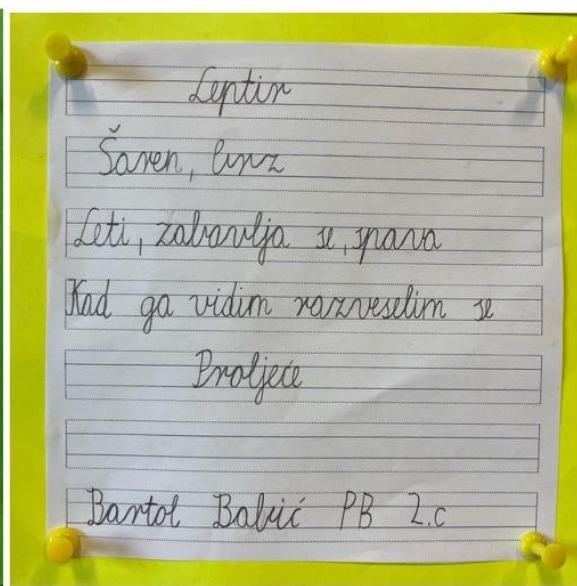 Leptir
Šaren, brz
Leti, zabavlja se, spava
Kad ga vidim razveselim se
Proljeće
Bartol Babić PB 2.c